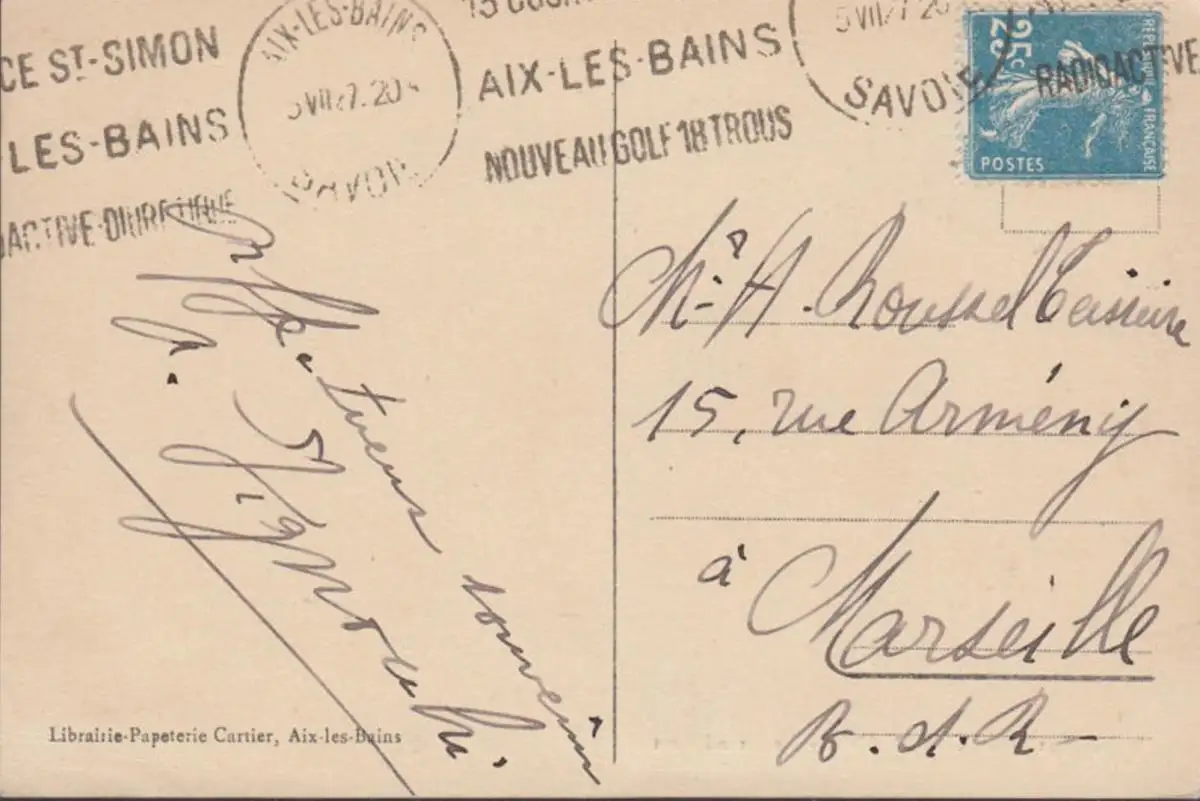 CE ST-SIMON
LES-BAINS
ACTIVE-DIURETIQUE
AIX-LES-BAINS
5 VII 27. 20
SAVOIE
AIX-LES-BAINS
NOUVEAU GOLF 18 TROUS
5 VII 27 20
SAVOIE
RADIOACTIVE
25c
REPUBLIQUE FRANÇAISE
POSTES
Affectueux souvenir
Mr A. Roussel Teisseire
15, rue Armény
à
Marseille
B.d.R-
Librairie-Papeterie Cartier, Aix-les-Bains